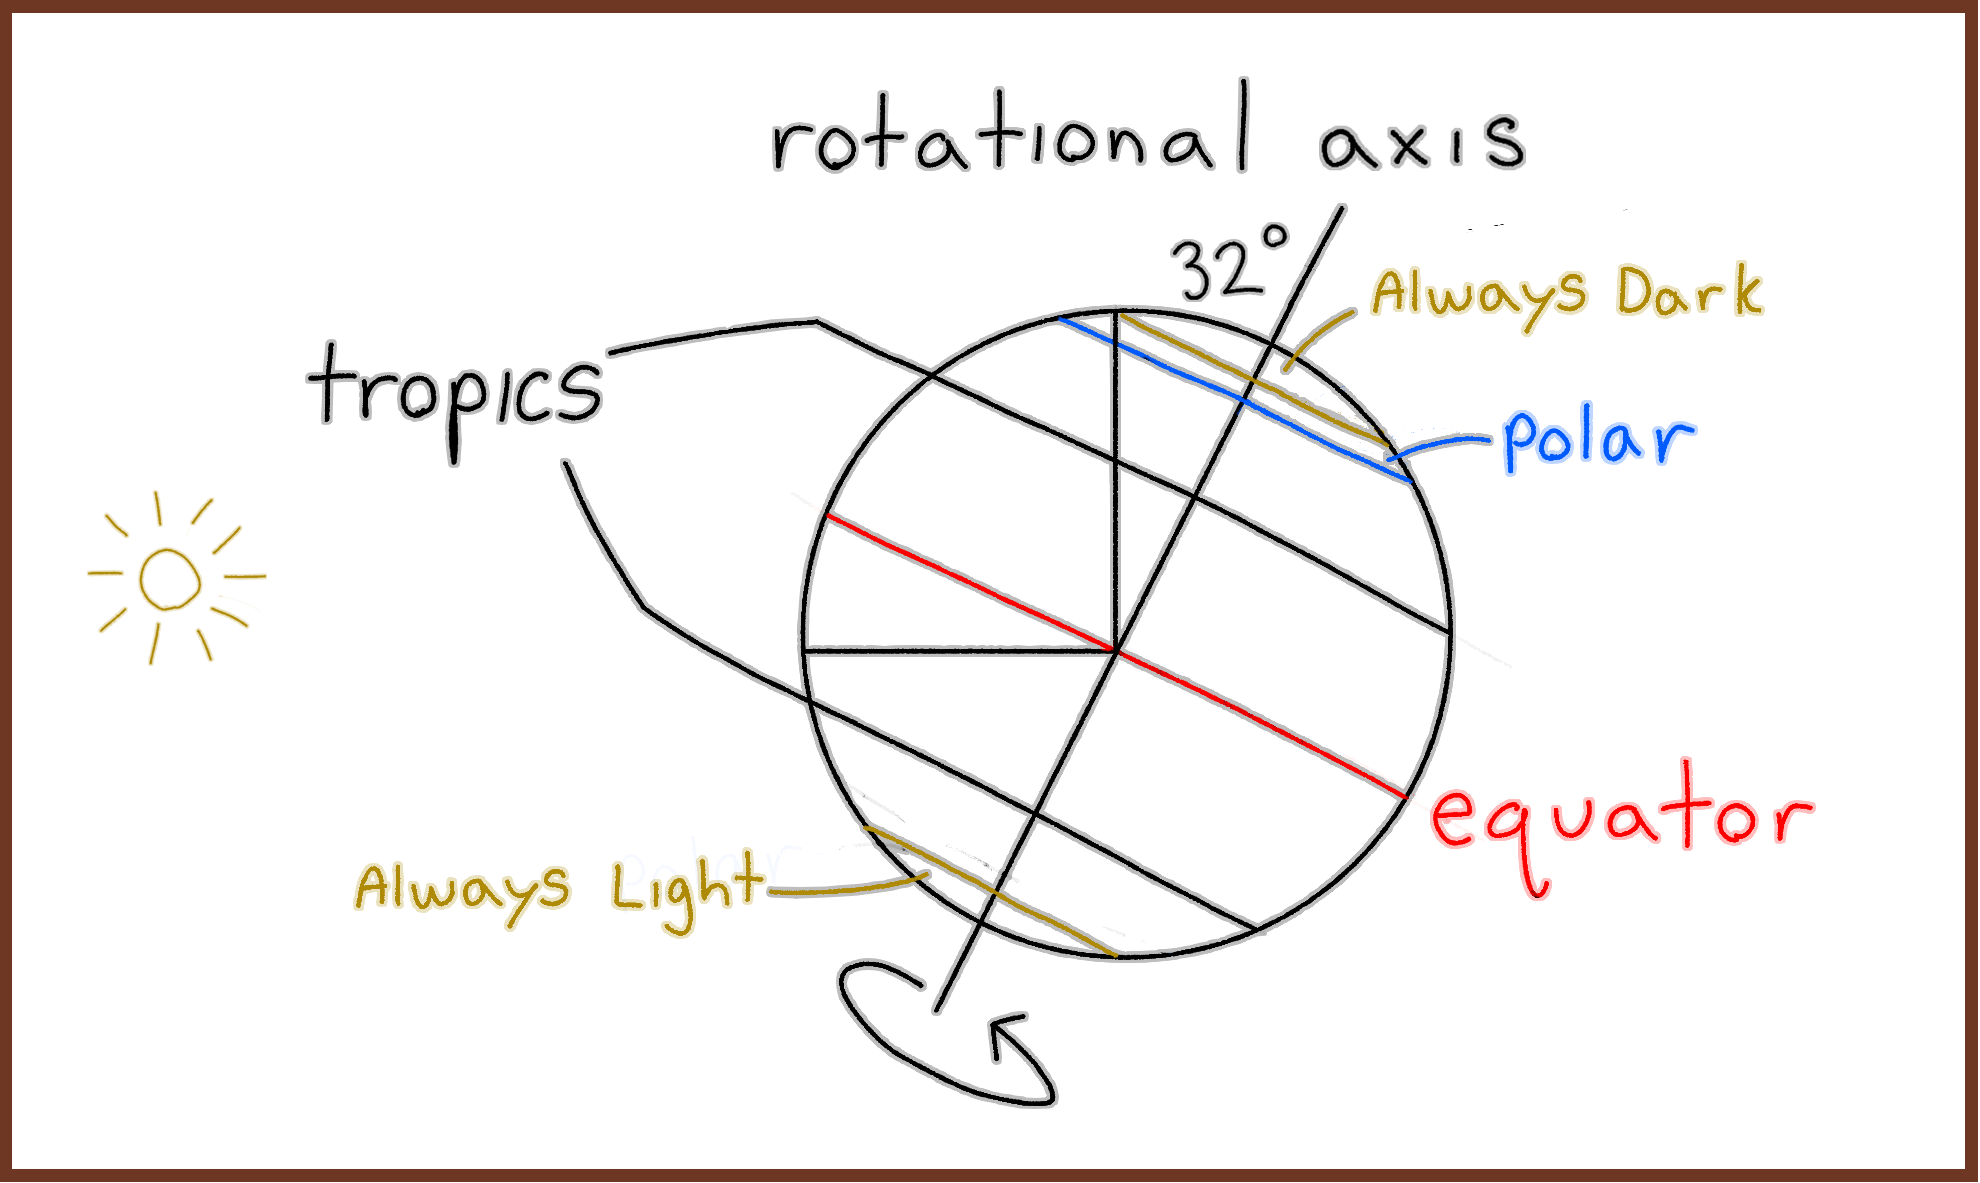 rotational axis
32°
Always Dark
tropics
polar
equator
Always Light